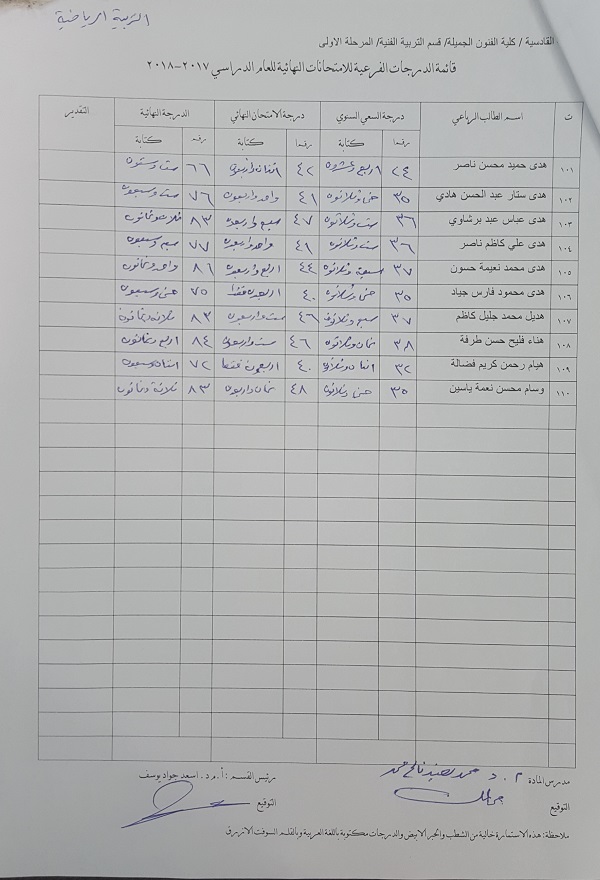 التربية الرياضية
القادسية / كلية الفنون الجميلة/ قسم التربية الفنية/ المرحلة الاولى
قائمة الدرجات الفرعية للامتحانات النهائية للعام الدراسي ٢٠١٧-٢٠١٨
ت اسم الطالب الرباعي درجة السعي السنوي درجة الامتحان النهائي الدرجة النهائية التقدير
رقما كتابة رقما كتابة رقما كتابة
١٠١ هدى حميد محسن ناصر ٢٤ اربع وعشرون ٤٢ اثنان واربعون ٦٦ ستة وستون
١٠٢ هدى ستار عبد الحسن هادي ٣٥ خمس وثلاثون ٤١ واحد واربعون ٧٦ ست وسبعون
١٠٣ هدى عباس عبد برشاوي ٣٦ ست وثلاثون ٤٧ سبع واربعون ٨٣ ثلاث وثمانون
١٠٤ هدى علي كاظم ناصر ٣٦ ست وثلاثون ٤١ واحد واربعون ٧٧ سبع وسبعون
١٠٥ هدى محمد نعيمة حسون ٣٧ سبعة وثلاثون ٤٤ اربع واربعون ٨١ واحد وثمانون
١٠٦ هدى محمود فارس جياد ٣٥ خمس وثلاثون ٤٠ اربعون فقط ٧٥ خمس وسبعون
١٠٧ هديل محمد جليل كاظم ٣٧ سبع وثلاثون ٤٦ ست واربعون ٨٣ ثلاث وثمانون
١٠٨ هناء فليح حسن طرفة ٣٨ ثمان وثلاثون ٤٦ ست واربعون ٨٤ اربع وثمانون
١٠٩ هيام رحمن كريم فضالة ٣٢ اثنان وثلاثون ٤٠ اربعون فقط ٧٢ اثنان وسبعون
١١٠ وسام محسن نعمة ياسين ٣٥ خمس وثلاثون ٤٨ ثمان واربعون ٨٣ ثلاثة وثمانون
مدرس المادة م . د رئيس القسم : أ.م.د. اسعد جواد يوسف
التوقيع التوقيع
ملاحظة: هذه الاستمارة خالية من الشطب والحبر الابيض والدرجات مكتوبة باللغة العربية وبالقلم السوفت الازرق